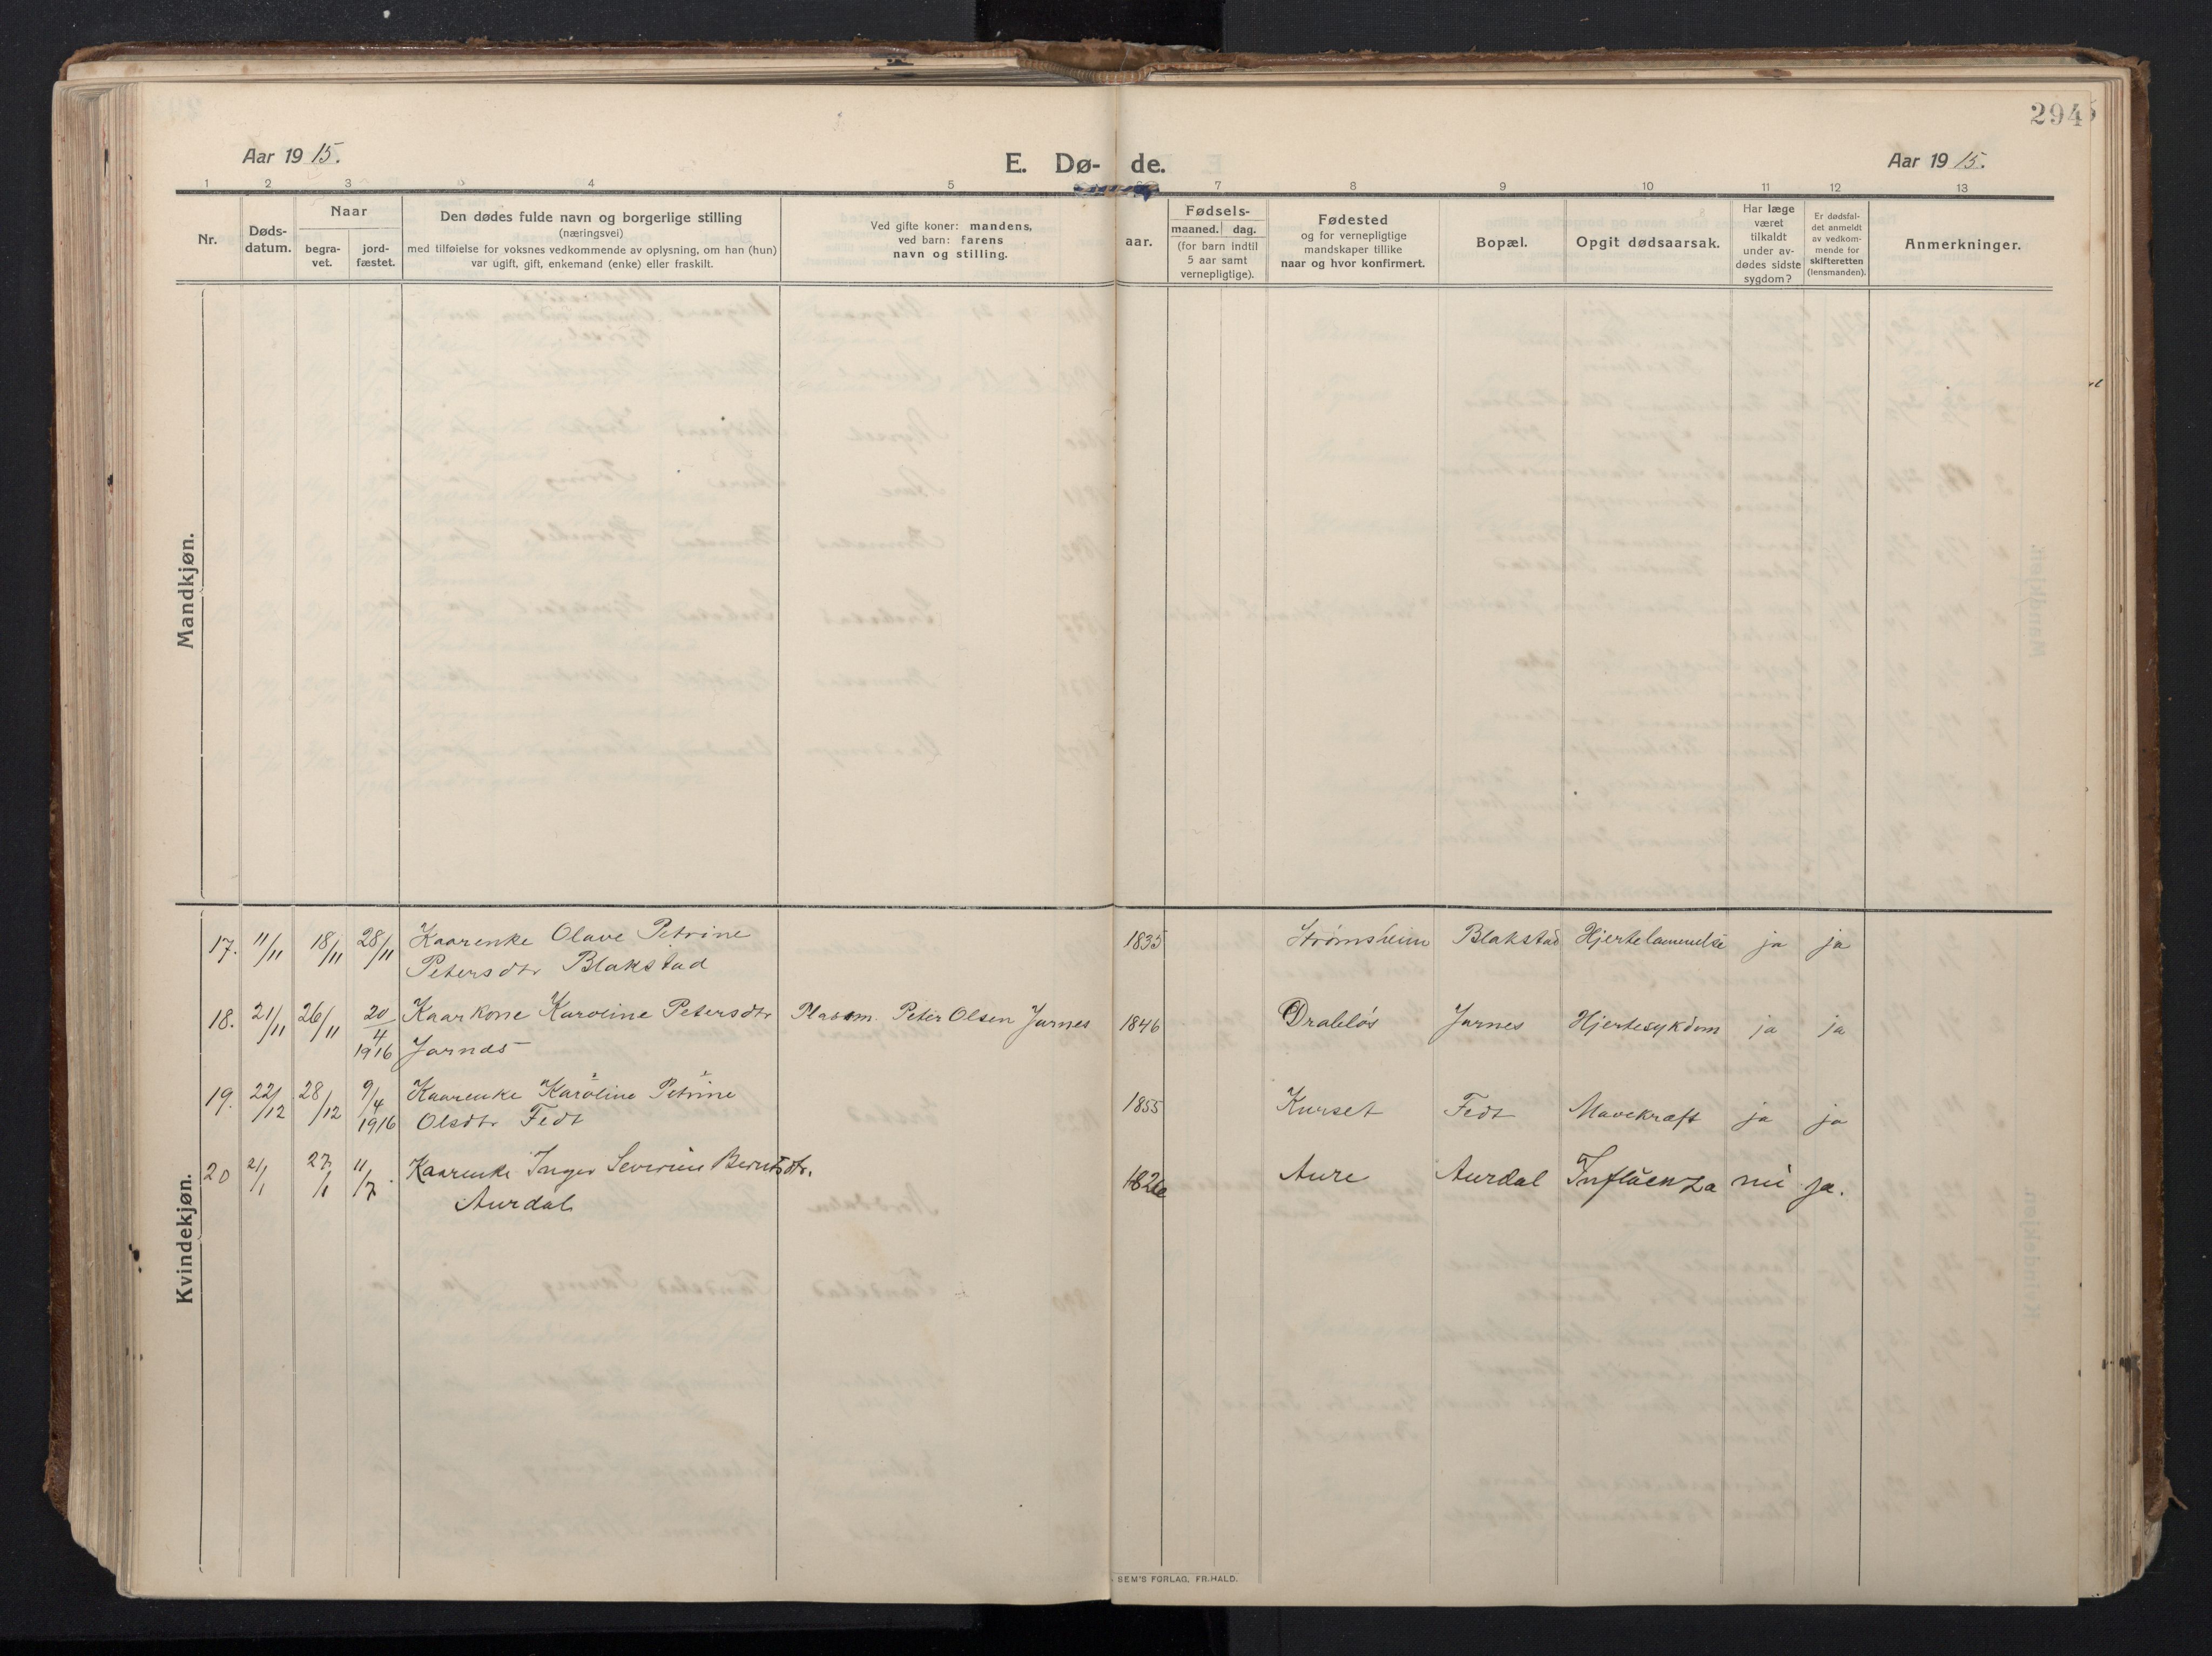 294
Aar 1915.
E. Dø- de.
Aar 1915.
1 2 3 4 5 7 8 9 10 11 12 13
Nr.
Døds-
datum.
Naar
begra-
vet.
jord-
fæstet.
Den dødes fulde navn og borgerlige stilling
(næringsvei)
med tilføielse for voksnes vedkommende av oplysning, om han (hun)
var ugift, gift, enkemand (enke) eller fraskilt.
Ved gifte koner: mandens,
ved barn: farens
navn og stilling.
aar.
Fødsels-
maaned. dag.
(for barn indtil
5 aar samt
vernepligtige).
Fødested
og for vernepligtige
mandskaper tillike
naar og hvor konfirmert.
Bopæl.
Opgit dødsaarsak.
Har læge
været
tilkaldt
under av-
dødes sidste
sygdom?
Er dødsfal-
det anmeldt
av vedkom-
mende for
skifteretten
(lensmanden).
Anmerkninger.
Mandkjøn.
17. 11/11 18/11 28/11 Kaarenke Olave Petrine 1835 Strømsheim Blakstad Hjertelammelse ja ja
Petersdtr Blakstad
18. 21/11 26/11 20/4 Kaarkone Karoline Petersdtr Plassm. Peter Olsen Jarnes 1846 Drabløs Jarnes Hjertesykdom ja ja
1916 Jarnes
19. 22/12 28/12 9/4 Kaarenke Karoline Petrine 1855 Kurset Fedt Mavekræft ja ja
1916 Olsdtr Fedt
20 21/1 27/1 11/7 Kaarenke Inger Severine Berntsdtr. 1826 Aure Aurdal Influenza nei ja.
Aurdal
Kvindekjøn.
SEM'S FORLAG, FR.HALD.